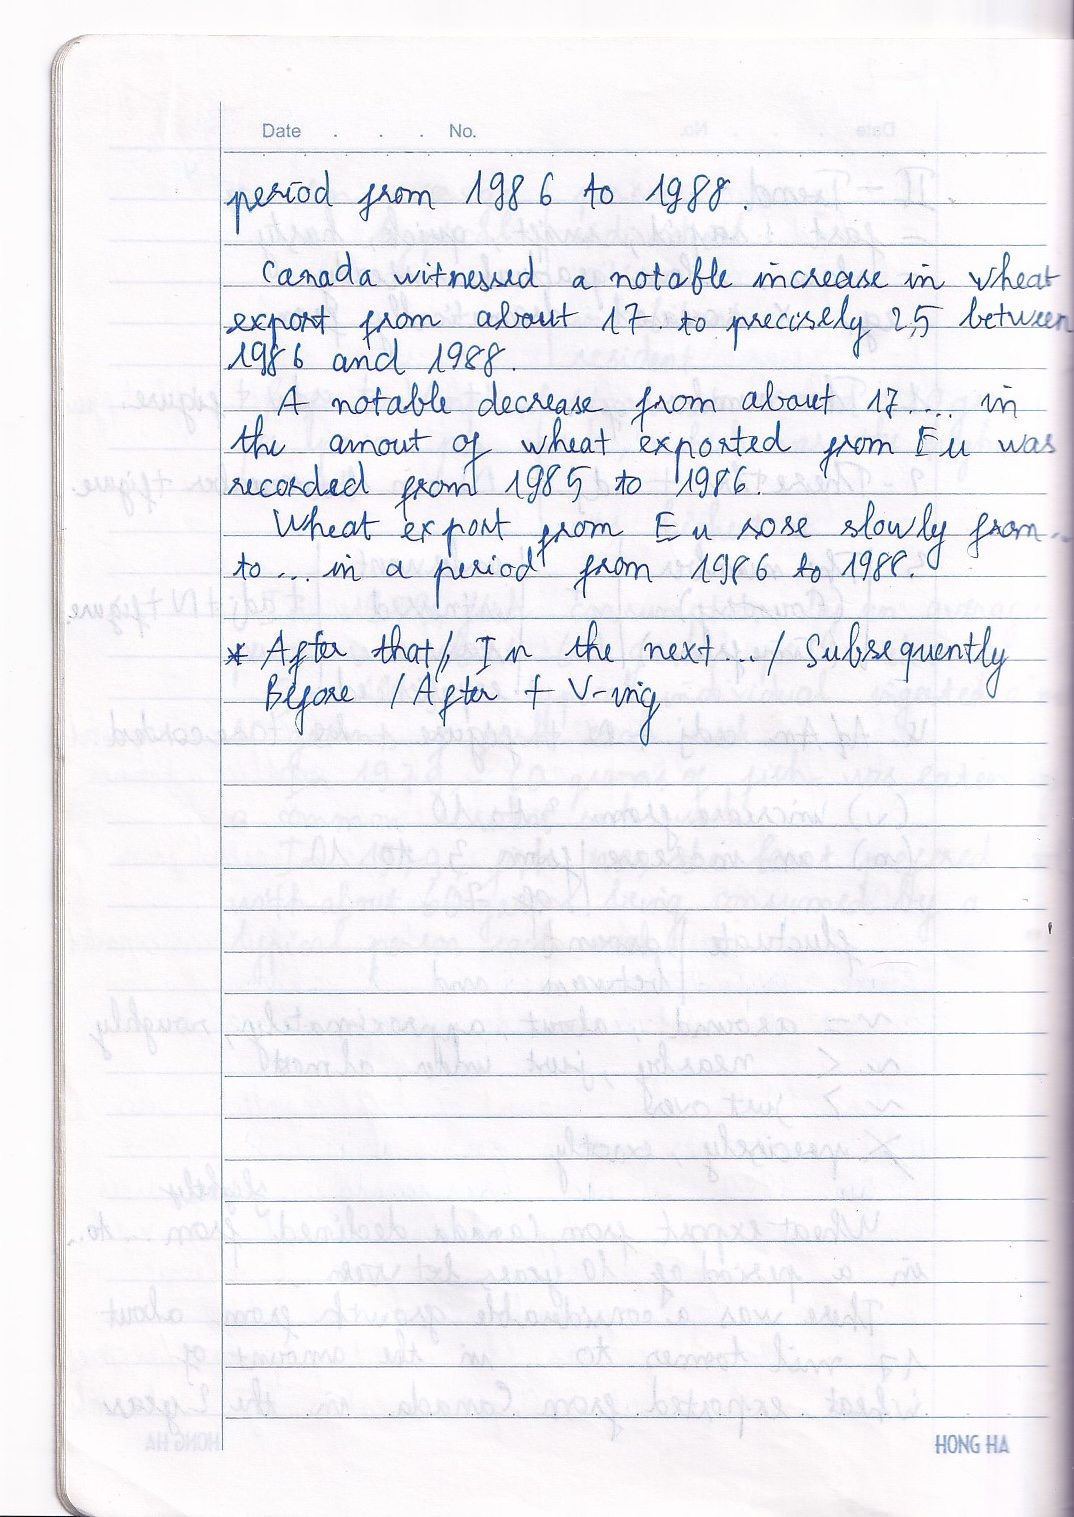 Date . . . No.
period from 1986 to 1988.
Canada witnessed a notable increase in wheat
export from about 17 to precisely 2,5 between
1986 and 1988.
A notable decrease from about 17.... in
the amout of wheat exported from Eu was
recorded from 1985 to 1986.
Wheat export from Eu rose slowly from...
to ... in a period from 1986 to 1988.
* After that/, In the next... / Subsequently
Before / After + V-ing
HONG HA